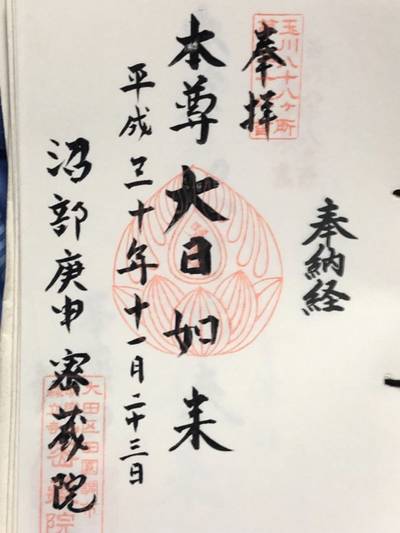 奉納経
奉拝
玉川八十八ヶ所
本尊 大日如来
平成三十年十一月二十三日
沼部庚申 密蔵院
大田区田園調布